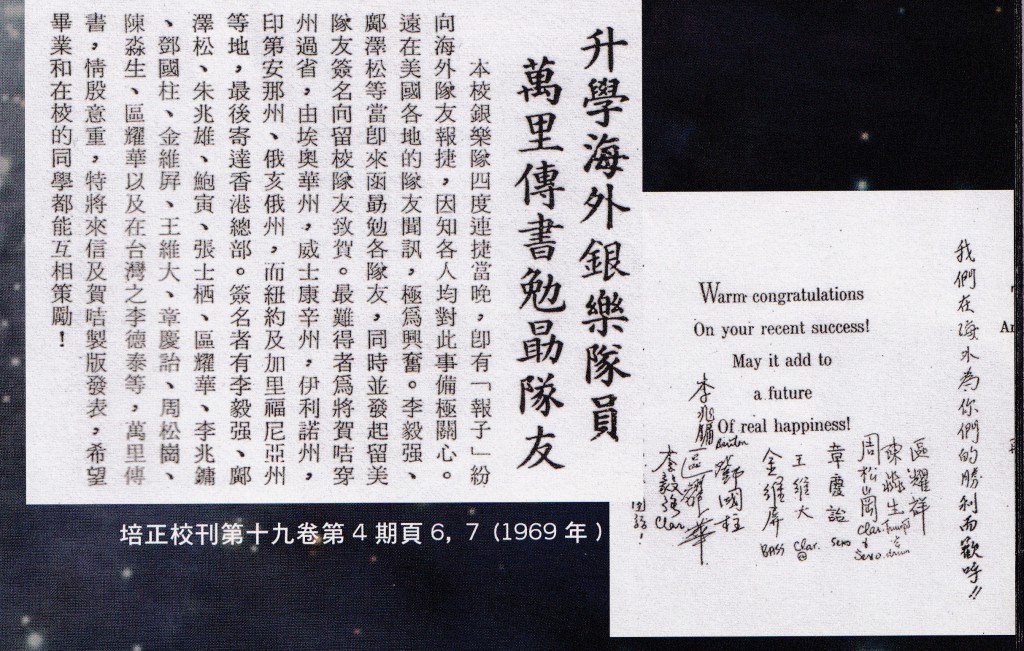 升學海外銀樂隊員
萬里傳書勉勗隊友
本校銀樂隊四度連捷當晚，卽有「報子」紛
向海外隊友報捷，因知各人均對此事備極關心。
遠在美國各地的隊友聞訊，極爲興奮。李毅强、
鄺澤松等當卽來函勗勉各隊友，同時並發起留美
隊友簽名向留校隊友致賀。最難得者爲將賀咭穿
州過省，由埃奧華州，威士康辛州，伊利諾州，
印第安那州、俄亥俄州，而紐約及加里福尼亞州
等地，最後寄達香港總部。簽名者有李毅强、鄺
澤松、朱兆雄、鮑寅、張士栖、區耀華、李兆鏞
、鄧國柱、金維屛、王維大、章慶詒、周松崗、
陳淼生、區耀華以及在台灣之李德泰等，萬里傳
書，情殷意重，特將來信及賀咭製版發表，希望
畢業和在校的同學都能互相策勵！
培正校刊第十九卷第 4 期頁 6，7（1969 年）
我們在海外為你們的勝利而歡呼!!
Warm congratulations
On your recent success!
May it add to
a future
Of real happiness!
區耀祥
陳淼生
周松崗 Clar. & Sexo.
章慶詒 Sexo
王維大 Clar.
金維屏 BASS
鄧國柱
李兆鏞
區耀華
李毅強 Clar.